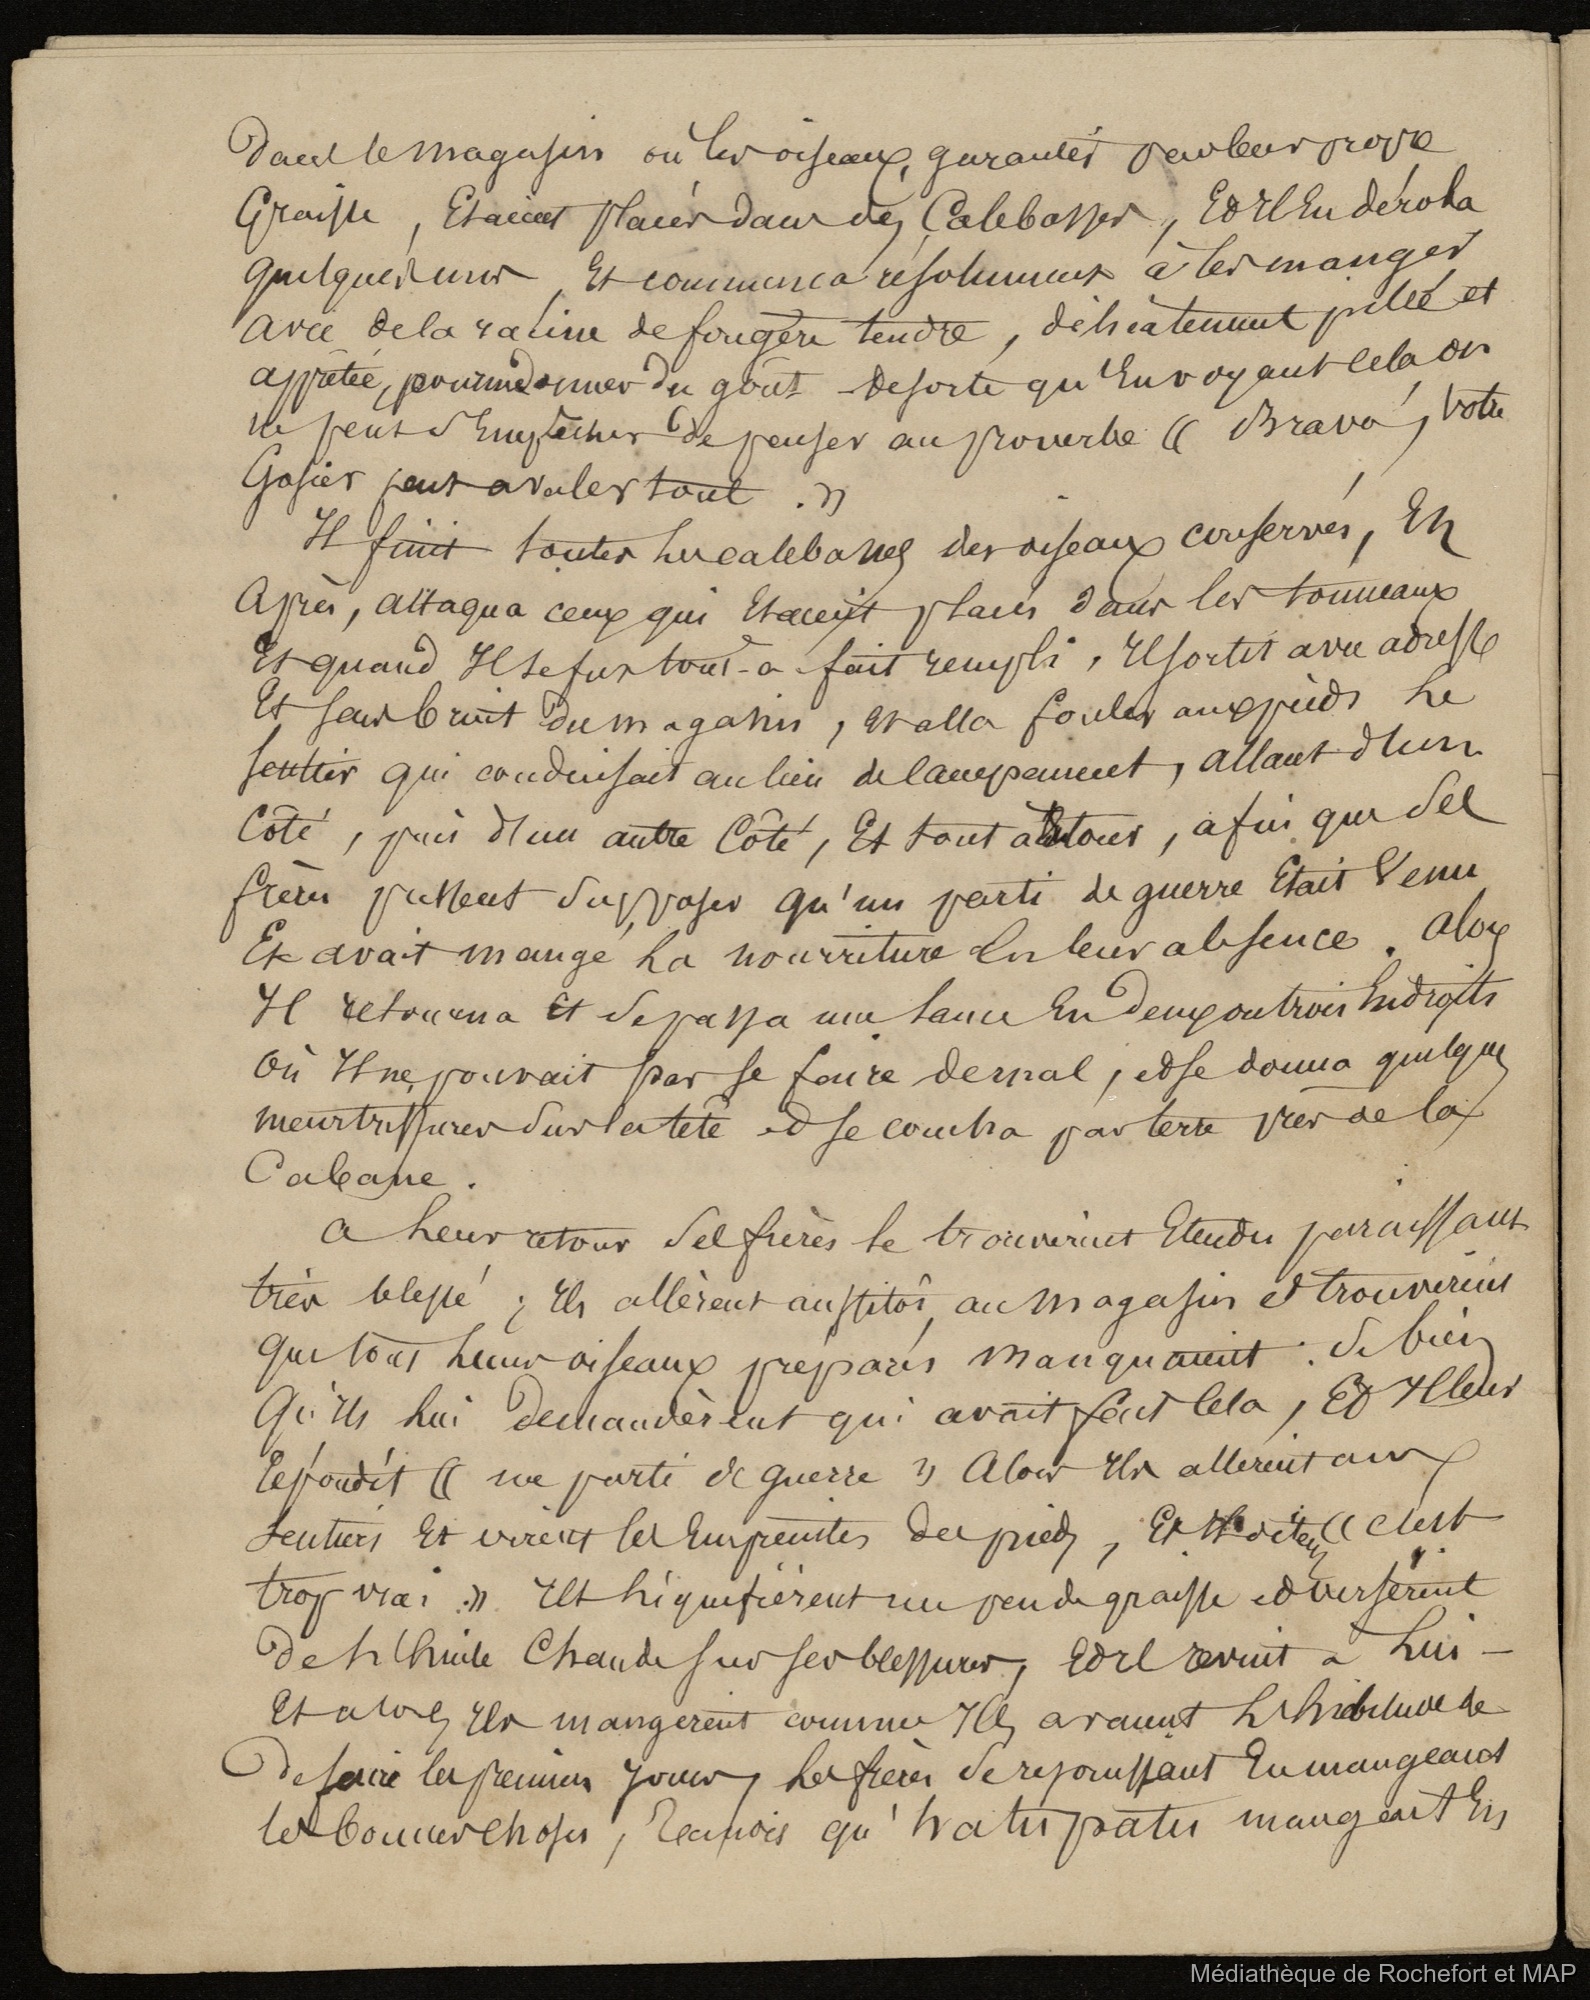 dans le magasin où les oiseaux, garantis par leur propre
Graisse, Etaient placés dans des Calebasses, Et Il En déroba
quelques uns Et commença résolument à les manger
avec de la racine de fougère tendre, délicatement pilée et
apprêtée, pour me donner du goût - de sorte qu'En voyant cela on
ne peut s'Empêcher de penser au proverbe (( Bravo, votre
Gosier peut avaler tout . ))
Il finit toutes les calebasses des oiseaux conservés, Et
Après, attaqua ceux qui Etaient placés dans les tonneaux
Et quand Il se fut tout-à-fait rempli, Il sortit avec adresse
Et sans bruit du magasin, et alla fouler aux pieds le
sentier qui conduisait au lieu de Campement, allant d'un
Côté, puis d'un autre Côté, Et tout autour, afin que Ses
frères pussent Supposer qu'un parti de guerre Etait Venu
Et avait mangé la nourriture En leur absence. Alors
Il retourna Et Se passa une lance En deux ou trois Endroits
Où Il ne pouvait pas se faire de mal, et se donna quelques
meurtrissures Sur la tête et se coucha par terre près de la
Cabane.
A leur retour Ses frères le trouvèrent Etendu paraissant
très blessé ; Ils allèrent aussitôt, au magasin et trouvèrent
que tous leurs oiseaux préparés manquaient : Si bien
Qu'Ils lui demandèrent qui avait fait Cela, Et Il leur
répondit (( un parti de guerre )) Alors Ils allèrent aux
Sentiers Et virent les Empreintes des pieds, Et dirent (( c'est
trop vrai . )) Ils liquéfièrent un peu de graisse et versèrent
de l'huile Chaude sur ses blessures, Et Il revint à Lui -
Et alors Ils mangèrent comme Ils avaient l'habitude de
De faire les premiers jours, les frères Se réjouissant En mangeant
les bonnes choses, tandis qu'Hatupatu mangeait En